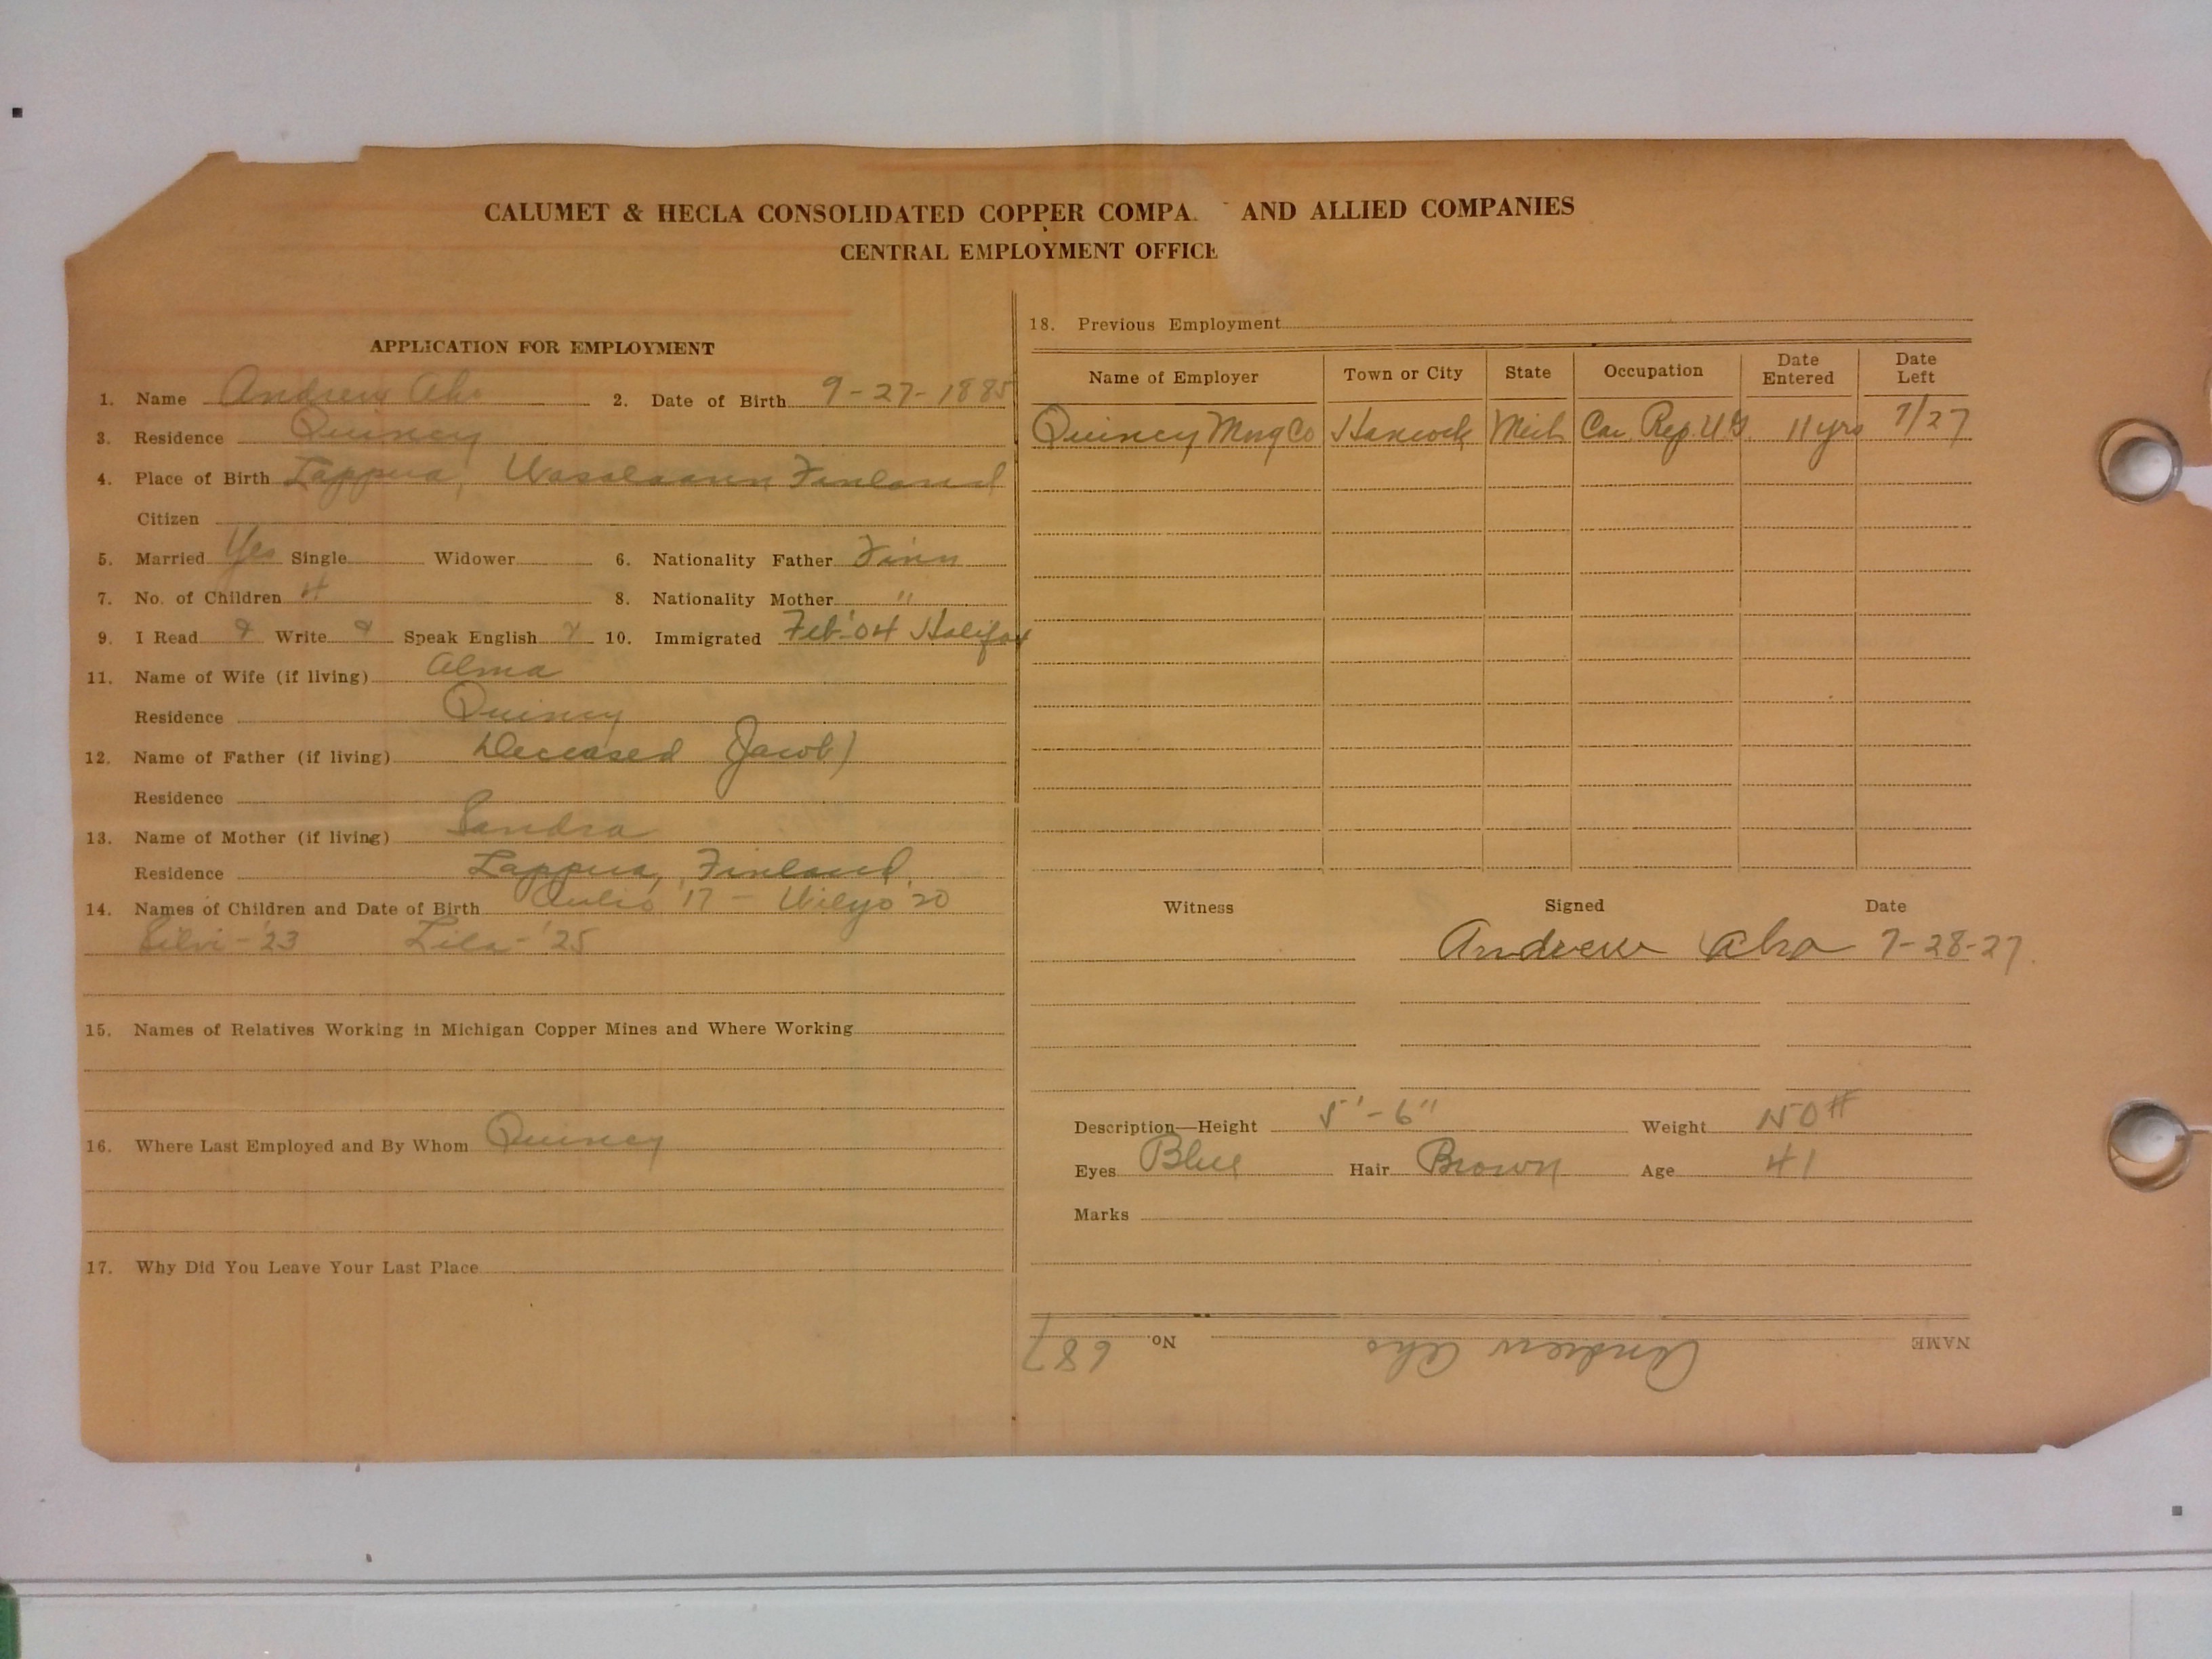 CALUMET & HECLA CONSOLIDATED COPPER COMPA. AND ALLIED COMPANIES
CENTRAL EMPLOYMENT OFFICE
APPLICATION FOR EMPLOYMENT
1. Name Andrew Aho 2. Date of Birth 9-27-1885
3. Residence Quincy
4. Place of Birth Lappua, Wasalaann Finland
Citizen
5. Married Yes Single Widower 6. Nationality Father Finn
7. No. of Children 4 8. Nationality Mother "
9. I Read Write Speak English 10. Immigrated Feb. '04 Halifax
11. Name of Wife (if living) Alma
Residence Quincy
12. Name of Father (if living) Deceased (Jacob)
Residence
13. Name of Mother (if living) Sandra
Residence Lappua, Finland
14. Names of Children and Date of Birth '17 - Wilyo '20
Silvi - '23 Lila - '25
15. Names of Relatives Working in Michigan Copper Mines and Where Working
16. Where Last Employed and By Whom Quincy
17. Why Did You Leave Your Last Place
18. Previous Employment
Name of Employer Town or City State Occupation Date Entered Date Left
Quincy Mng Co Hancock Mich Car Rep. U.G. 11 yrs 7/27
Witness Signed Date
Andrew Aho 7-28-27
Description—Height 5'-6" Weight 150#
Eyes Blue Hair Brown Age 41
Marks
NAME Andrew Aho No. 687